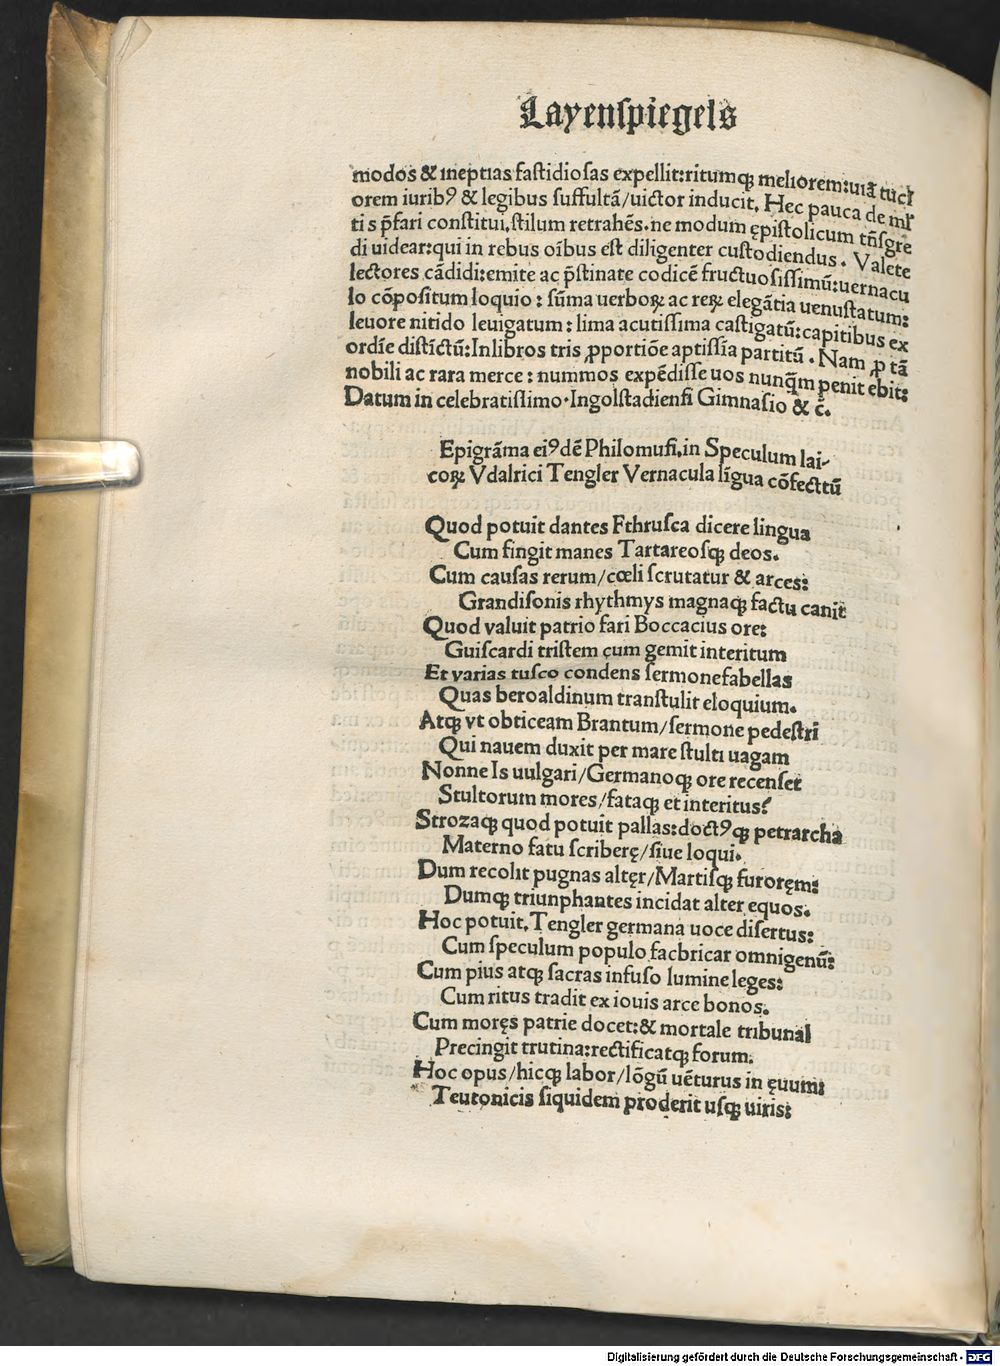 Layenſpiegels
modos & ineptias faſtidioſas expellit:ritumqꝫ meliorem:uiã tuci
orem iuribꝰ & legibus ſuffultã/uictor inducit. Hec pauca de ml
ti s p̃fari conſtitui.ſtilum retrahẽs.ne modum ępiſtolicum tñſgre
di uidear:qui in rebus oĩbus eſt diligenter cuſtodiendus. Valete
lectores cãdidi:emite ac p̃ſtinate codicẽ fructuoſiſſimũ:uernacu
lo cõpoſitum loquio: ſũma uerboꝝ ac reꝝ elegãtia uenuſtatum:
leuore nitido leuigatum: lima acutiſſima caſtigatũ:capitibus ex
ordĩe diſtĩctũ:In libros tris ꝓportiõe aptiſſĩa partitũ. Nam ꝓ tã
nobili ac rara merce: nummos expẽdiſſe uos nunq̃m penit ebit:
Datum in celebratiſſimo·Ingolſtadienſi Gimnaſio & c̃.
Epigrãma eiꝰdẽ Philomuſi.in Speculum lai-
coꝝ Vdalrici Tengler Vernacula lĩgua cõfecttũ
Quod potuit dantes Fthruſca dicere lingua
Cum fingit manes Tartareoſqꝫ deos.
Cum cauſas rerum/cœli ſcrutatur & arces:
Grandiſonis rhythmys magnaqꝫ factu canit
Quod valuit patrio fari Boccacius ore:
Guiſcardi triſtem cum gemit interitum
Et varias tuſco condens ſermonefabellas
Quas beroaldinum tranſtulit eloquium.
Atqꝫ vt obticeam Brantum/ſermone pedeſtri
Qui nauem duxit per mare ſtulti uagam
Nonne Is uulgari/Germanoqꝫ ore recenſet
Stultorum mores/fataqꝫ et interitus?
Strozaqꝫ quod potuit pallas:doctꝰqꝫ petrarcha
Materno fatu ſcriberę/ſiue loqui.
Dum recolit pugnas altęr/Martiſqꝫ furoręm:
Dumqꝫ triunphantes incidat alter equos.
Hoc potuit.Tengler germana uoce diſertus:
Cum ſpeculum populo facbricar omnigenũ:
Cum pius atqꝫ ſacras infuſo lumine leges:
Cum ritus tradit ex iouis arce bonos.
Cum moręs patrie docet:& mortale tribunal
Precingit trutina:rectificatqꝫ forum.
Hoc opus/hicqꝫ labor/lõgũ uẽturus in ęuum:
Teutonicis ſiquidem proderit uſqꝫ uiris:
Digitalisierung gefördert durch die Deutsche Forschungsgemeinschaft - DFG